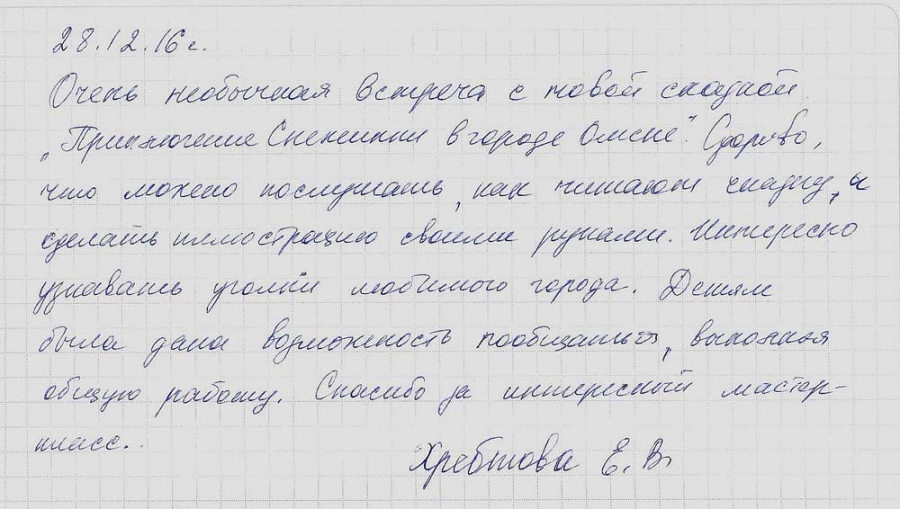 28.12.16 г.
Очень необычная встреча с новой сказкой
"Приключение Снежинки в городе Омске". Здорово,
что можно послушать, как читают сказку, и
сделать иллюстрацию своими руками. Интересно
узнавать уголки любимого города. Детям
была дана возможность пообщаться, выполняя
общую работу. Спасибо за интересный мастер-
класс.
Хребтова Е.В.